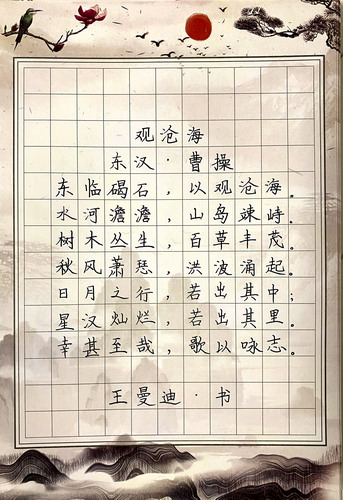 观沧海
东汉·曹操
东临碣石，以观沧海。
水河澹澹，山岛竦峙。
树木丛生，百草丰茂。
秋风萧瑟，洪波涌起。
日月之行，若出其中；
星汉灿烂，若出其里。
幸甚至哉，歌以咏志。
王曼迪·书